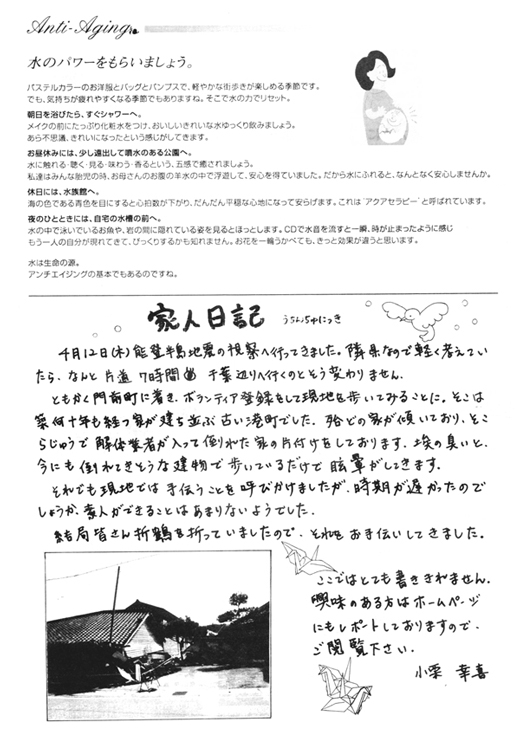 Anti-Aging
水のパワーをもらいましょう。
パステルカラーのお洋服とバッグとパンプスで、軽やかな街歩きが楽しめる季節です。
でも、気持ちが疲れやすくなる季節でもありますね。そこで水の力でリセット。
朝日を浴びたら、すぐシャワーへ。
メイクの前にたっぷり化粧水をつけ、おいしいきれいな水ゆっくり飲みましょう。
あら不思議、きれいになったという感じがしてきます。
お昼休みには、少し遠出して噴水のある公園へ。
水に触れる・聴く・見る・味わう・香るという、五感で癒されましょう。
私達はみんな胎児の時、お母さんのお腹の羊水の中で浮遊して、安心を得ていました。だから水にふれると、なんとなく安心しませんか。
休日には、水族館へ。
海の色である青色を目にすると心拍数が下がり、だんだん平穏な心地になって安らげます。これは「アクアセラピー」と呼ばれています。
夜のひとときには、自宅の水槽の前へ。
水の中で泳いでいるお魚や、岩の間に隠れている姿を見るとほっとします。CDで水音を流すと一瞬、時が止まったように感じ
もう一人の自分が現れてきて、びっくりするかも知れません。お花を一輪うかべても、きっと効果が違うと思います。
水は生命の源。
アンチエイジングの基本でもあるのですね。
家人日記 うちんちゅにっき
4月12日(木)能登半島地震の視察へ行ってきました。隣県なので軽く考えてい
たら、なんと片道7時間 千葉辺りへ行くのとそう変わりません。
ともかく門前町に着き、ボランティア登録をして現地を歩いてみることに。そこは
築何十年も経つ家が建ち並ぶ古い港町でした。殆どの家が傾いており、そこ
らじゅうで解体業者が入って倒れた家の片付けをしております。埃の臭いと、
今にも倒れてきそうな建物で歩いているだけで眩暈がしてきます。
それでも現地では手伝うことを呼びかけましたが、時期が遅かったので
しょうか、素人ができることはあまりないようでした。
結局皆さん折鶴を折っていましたので、それをお手伝いしてきました。
ここではとても書ききれません。
興味のある方はホームページ
にもレポートしておりますので、
ご閲覧下さい。
小栗 幸喜